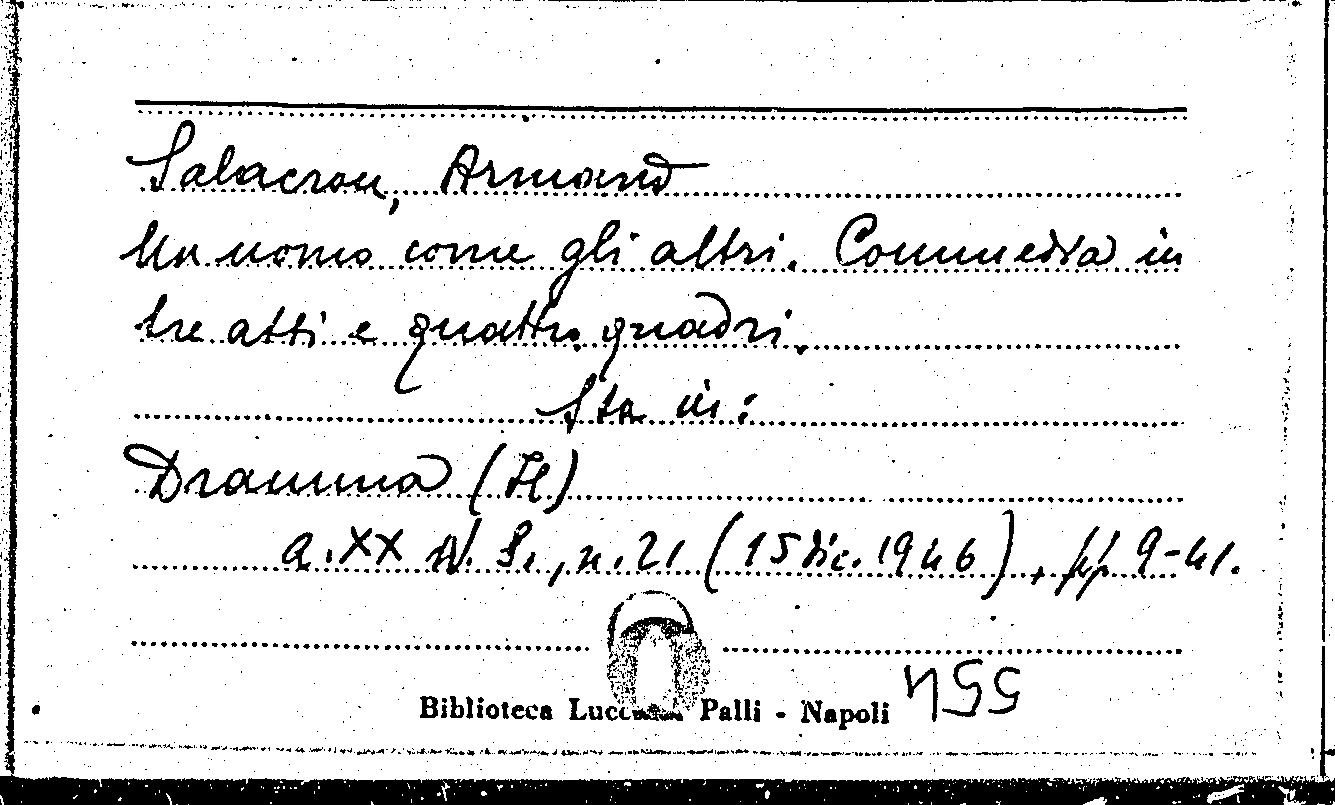 Salacrou, Armand
Un uomo come gli altri. Commedia in
tre atti e quattro quadri.
Sta in:
Dramma (Il)
a. XX N. S., n. 21 (15 dic. 1946), pp 9-41.
Biblioteca Palli - Napoli